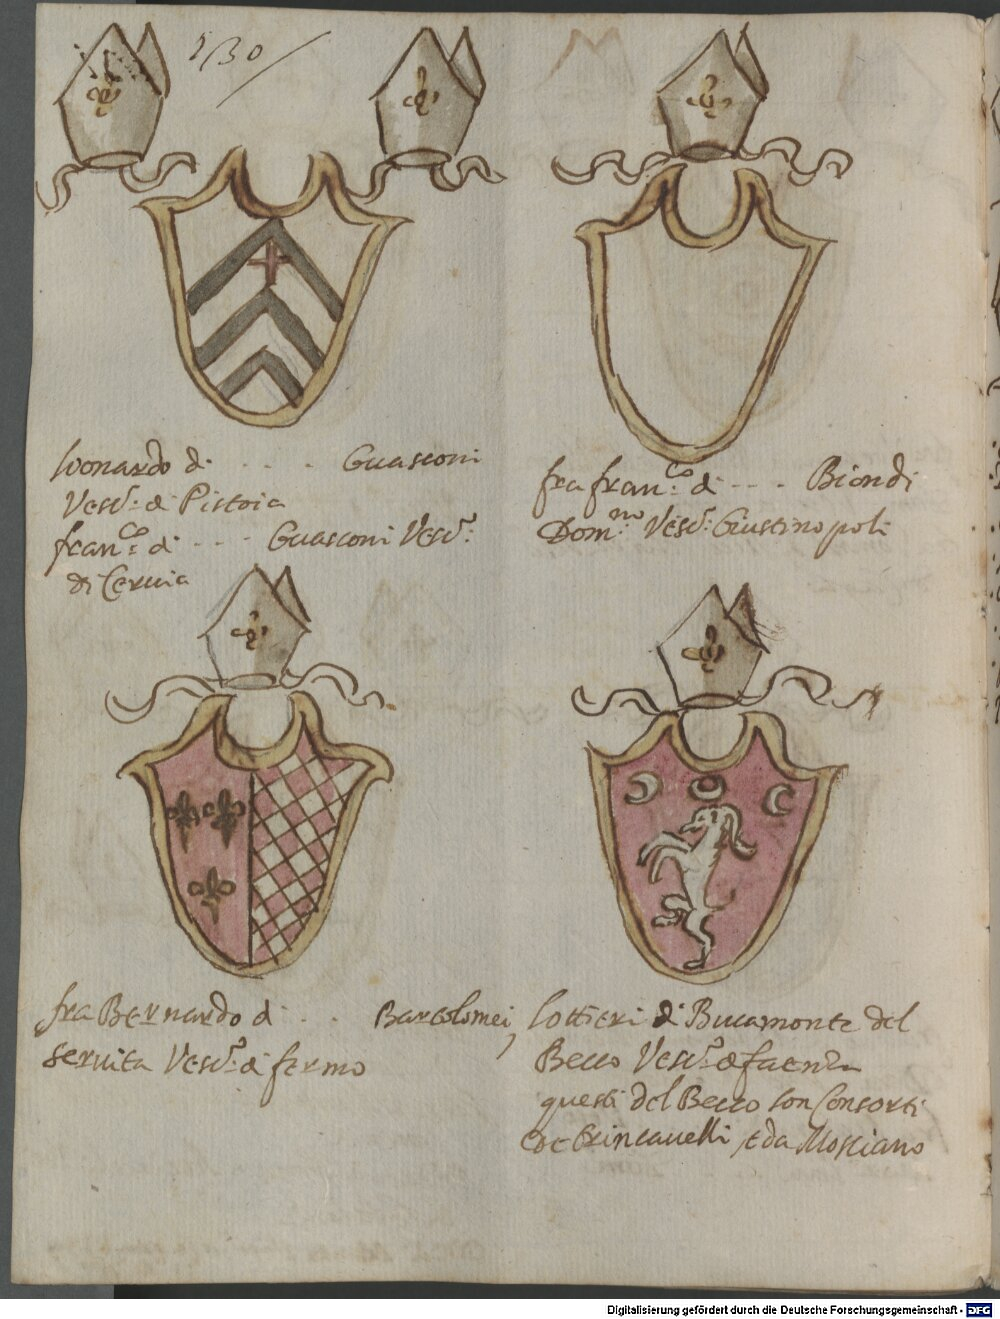 130
leonardo di . . . . Guasconi
Vesc.º di Pistoia
fran.co di . . . . Guasconi Vesc.º
di Cervia
fra fran.co di - - - Biondi
Dom.no Vesc.º Giustinopoli
fra Bernardo di . . . Bartolomei,
servita Vesc.º di fermo
lottieri di Bucamonte del
Becco Vesc.º di faenza
questi del Becco son Consorti
de Trincavelli, e da Mosciano
Digitalisierung gefördert durch die Deutsche Forschungsgemeinschaft - DFG